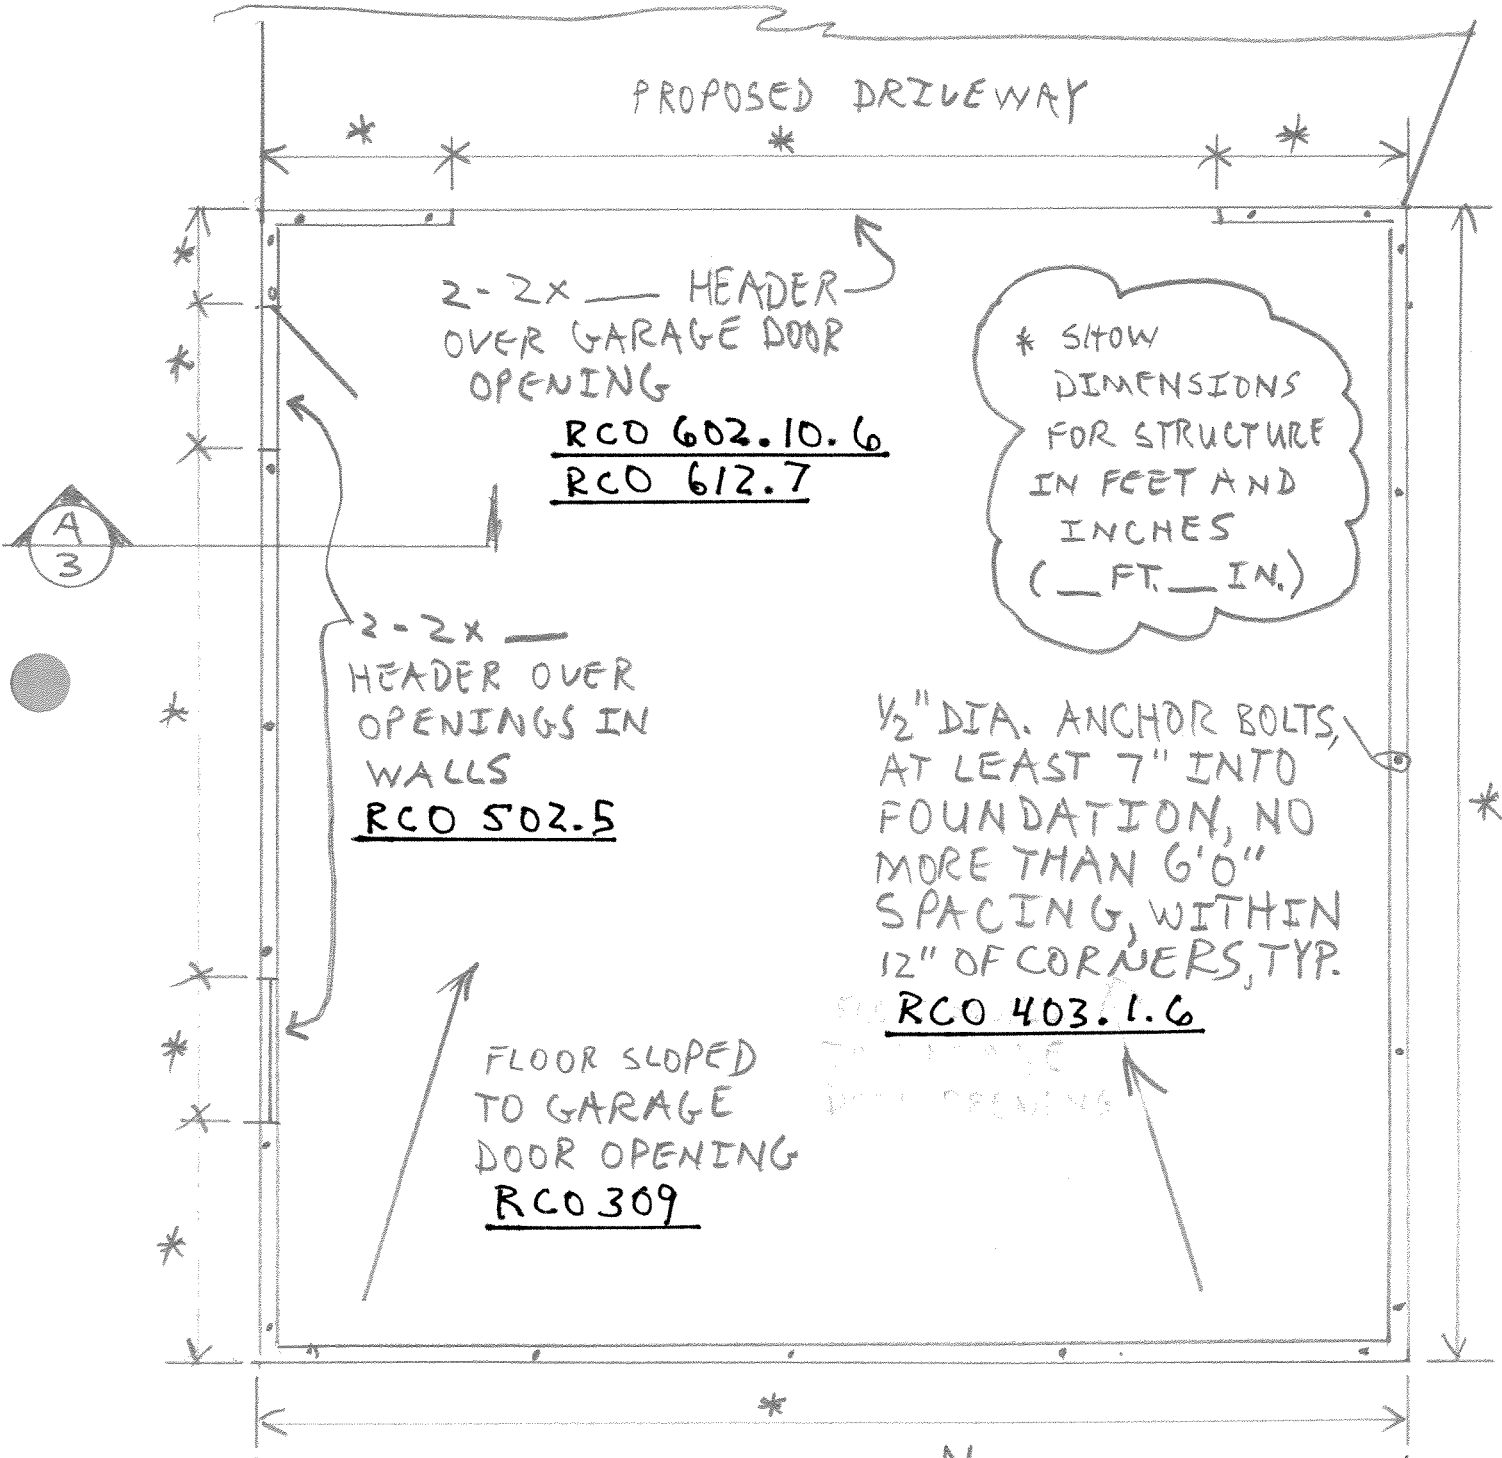 PROPOSED DRIVEWAY
*
*
*
2-2x ___ HEADER
OVER GARAGE DOOR
OPENING
RCO 602.10.6
RCO 612.7
* SHOW
DIMENSIONS
FOR STRUCTURE
IN FEET AND
INCHES
(__FT.__IN.)
*
*
A
3
2-2x ___
HEADER OVER
OPENINGS IN
WALLS
RCO 502.5
*
1/2" DIA. ANCHOR BOLTS,
AT LEAST 7" INTO
FOUNDATION, NO
MORE THAN 6'0"
SPACING, WITHIN
12" OF CORNERS, TYP.
RCO 403.1.6
*
FLOOR SLOPED
TO GARAGE
DOOR OPENING
RCO 309
*
*
*